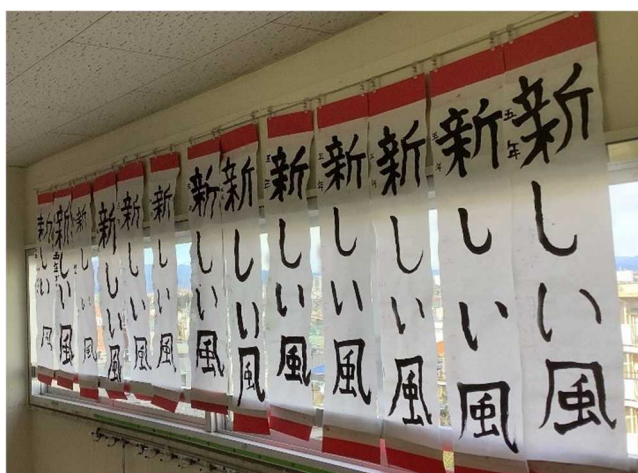 新しい風
五年
新しい風
新しい風
新しい風
五年
新しい風
五年
新しい風
新しい風
新しい風
新しい風
新しい風
新しい風
新しい風
新しい風